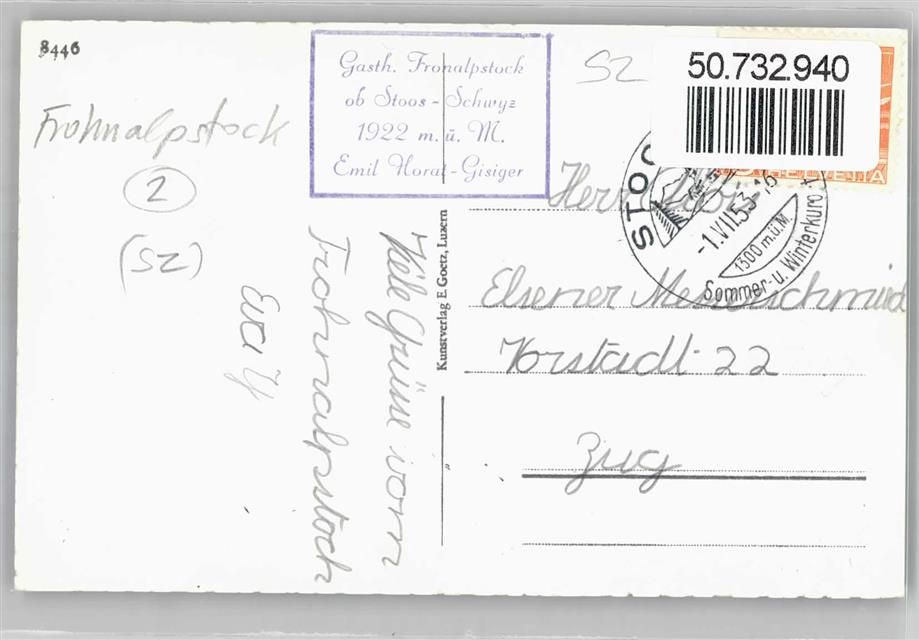 8446
Gasth. Fronalpstock
ob Stoos - Schwyz
1922 m. ü. M.
Emil Horat-Gisiger
SZ
50.732.940
HELVETIA
Frohnalpstock
2
(SZ)
STOO
-1.VII.53-16
1300 m.ü.M.
Sommer- u. Winterkurort
Herr
Elsener Messerschmied
Vorstadt 22
Zug
Kunstverlag E. Goetz, Luzern
Viele Grüße vom
Frohnalpstock
Eva Y